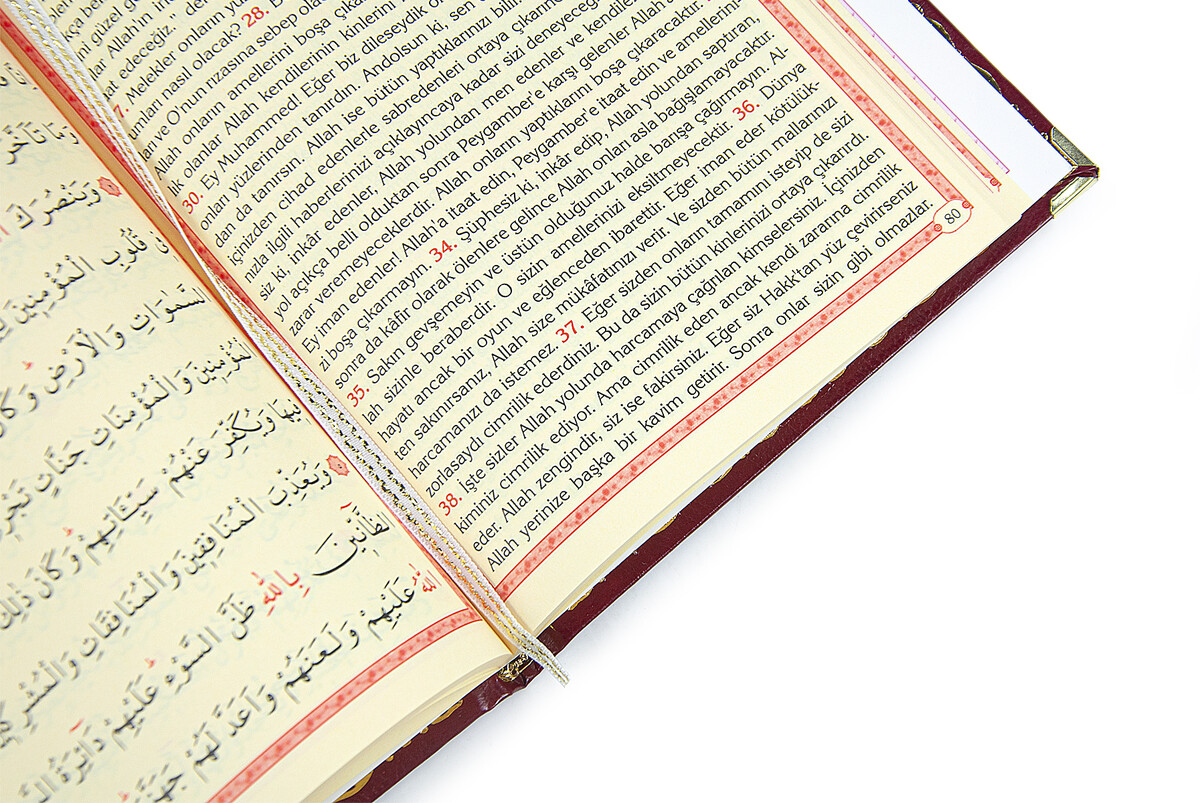 güzel
Allah'ın
edeceğiz.,,
Melekler onların
nasıl olacak? 28.
ve O'nun rızasına sebep
Allah onların amellerini boşa
lik olanlar Allah kendilerinin kinlerini
30. Ey Muhammed! Eğer biz dileseydik
onları yüzlerinden tanırdın. Andolsun ki, sen
dan da tanırsın. Allah ise bütün yaptıklarınızı
içinizden cihad edenlerle sabredenleri ortaya
nızla ilgili haberlerinizi açıklayıncaya kadar sizi
siz ki, inkâr edenler, Allah yolundan men edenler ve
yol açıkça belli olduktan sonra Peygamber'e karşı gelenler
zarar veremeyeceklerdir. Allah onların yaptıklarını boşa çıkaracaktır.
Ey iman edenler! Allah'a itaat edin, Peygamber'e itaat edin ve amellerini-
zi boşa çıkarmayın. 34. Şüphesiz ki, inkâr edip, Allah yolundan saptıran,
sonra da kâfir olarak ölenlere gelince Allah onları asla bağışlamayacaktır.
35. Sakın gevşemeyin ve üstün olduğunuz halde barışa çağırmayın. Al-
lah sizinle beraberdir. O sizin amellerinizi eksiltmeyecektir. 36. Dünya
hayatı ancak bir oyun ve eğlenceden ibarettir. Eğer iman eder kötülük-
ten sakınırsanız, Allah size mükâfatınızı verir. Ve sizden bütün mallarınızı
harcamanızı da istemez. 37. Eğer sizden onların tamamını isteyip de sizi
zorlasaydı cimrilik ederdiniz. Bu da sizin bütün kinlerinizi ortaya çıkarırdı.
38. İşte sizler Allah yolunda harcamaya çağrılan kimselersiniz. İçinizden
kiminiz cimrilik ediyor. Ama cimrilik eden ancak kendi zararına cimrilik
eder. Allah zengindir, siz ise fakirsiniz. Eğer siz Hakk'tan yüz çevirirseniz
Allah yerinize başka bir kavim getirir. Sonra onlar sizin gibi olmazlar.
80
تَأَخَّرَ
وَيَنْصُرَكَ
قُلُوبِ الْمُؤْمِنِينَ
السَّمٰوَاتِ وَالْاَرْضِ
الْمُؤْمِنِينَ وَالْمُؤْمِنَاتِ جَنَّاتٍ
وَيُكَفِّرَ عَنْهُمْ سَيِّـَٔاتِهِمْ وَكَانَ ذٰلِكَ
وَيُعَذِّبَ الْمُنَافِقِينَ وَالْمُنَافِقَاتِ
الظَّٓانِّينَ بِاللّٰهِ ظَنَّ السَّوْءِ عَلَيْهِمْ دَٓائِرَةُ
اللّٰهُ عَلَيْهِمْ وَلَعَنَهُمْ وَاَعَدَّ لَهُمْ